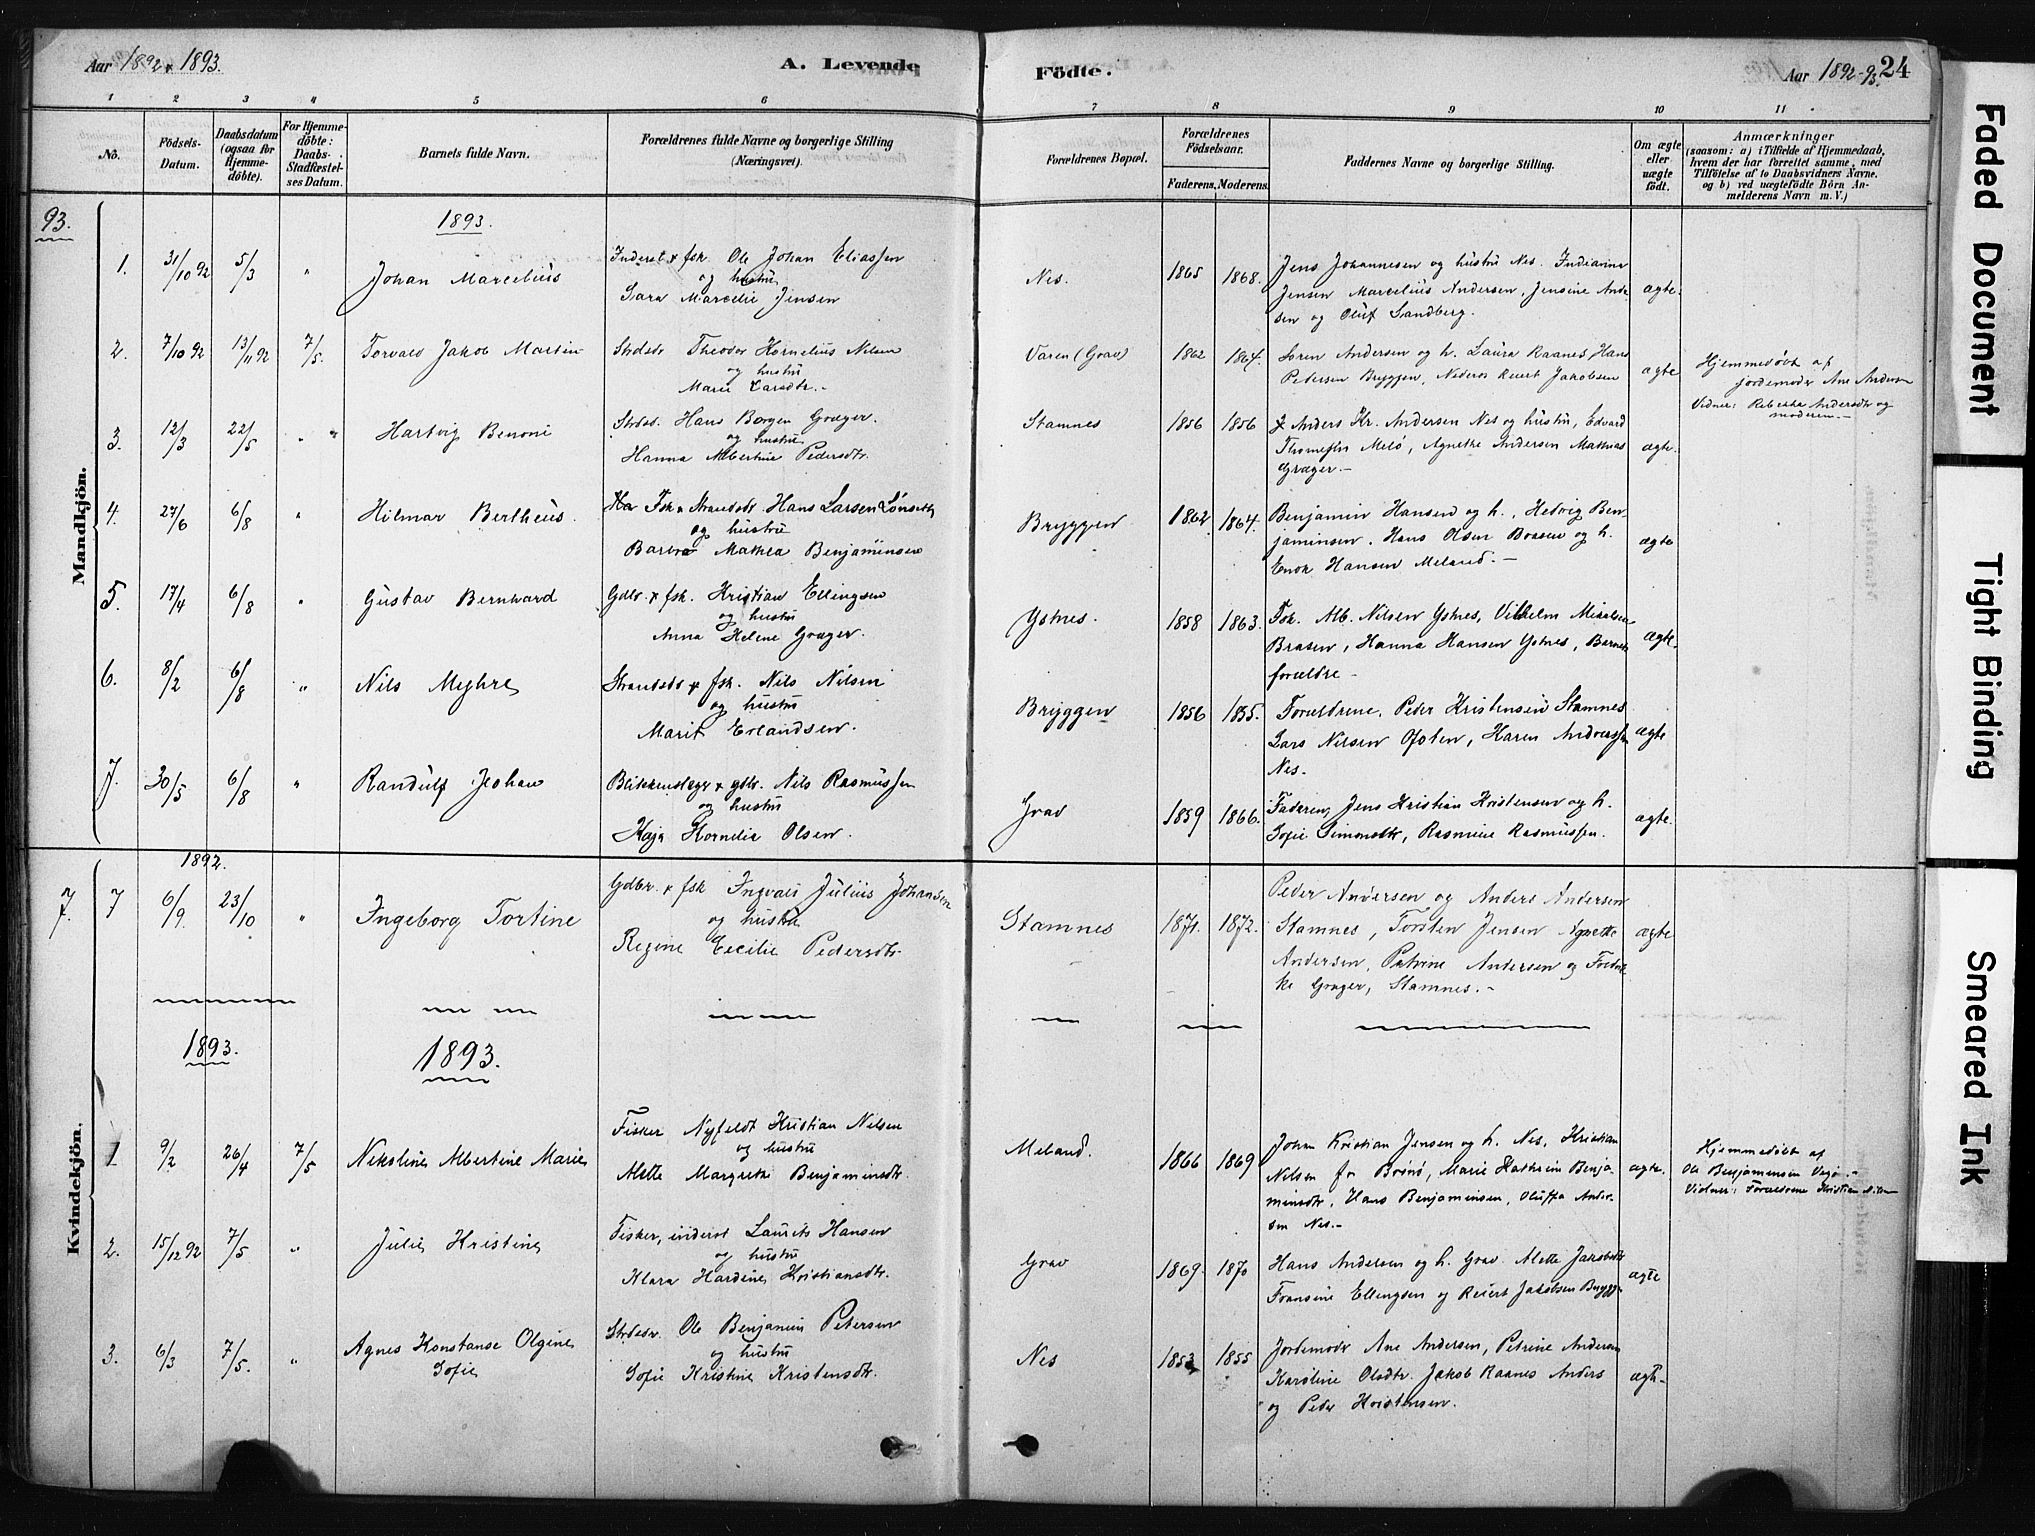 Aar 1892 & 1893.
A. Levende
Födte.
Aar 1892-93. 24
1 2 3 4 5 6 7 8 9 10 11
No.
Födsels-Datum.
Daabsdatum (ogsaa for Hjemme-döbte).
For Hjemme-döbte: Daabs-Stadfæstel-ses Datum.
Barnets fulde Navn.
Forældrenes fulde Navne og borgerlige Stilling (Næringsvei).
Forældrenes Bopæl.
Forældrenes Födselsaar.
Faderens. Moderens.
Faddernes Navne og borgerlige Stilling.
Om ægte eller uægte födt.
Anmærkninger
(saasom: a) i Tilfælde af Hjemmedaab,
hvem der har forrettet samme, med
Tilföielse af to Daabsvidners Navne.
og b) ved uægtefödte Börn An-
melderens Navn m. V.)
93.
Mandkjön.
1893.
1. 31/10 92 5/3 " Johan Marcelius
Inderst & fsk. Ole Johan Eliassen
og hustru
Sara Marcelie Jensen
Nes. 1865 1868.
Jens Johannesen og hustru Nes. Indianna
Jensen Marcelius Andersen, Jensine Ander-
sen og Oluf Sandberg.
ægte.
2. 7/10 92 13/11 92 7/5. Torvald Jakob Martin
Strdsdr Theodor Kornelius Nilsen
og hustru
Marie Larsdtr.-
Varen (Grav) 1862 1864.
Sören Andersen og h. Laura Raanes Hans
Petersen Bryggen, Reiert Jakobsen
ægte
Hjemmedøbt af
jordemodr Ane Andersen
Vidner: Rebekka Andersdtr og
moderen.-
3. 12/3 22/5 " " Hartvig Benoni
Strdsd. Hans Borgen Græger.
og hustru
Hanna Albertine Pedersdtr.
Stamnes 1856 1856
Anders Kr. Andersen Nes og hustru, Edvard
Melö, Agnethe Andersen Mathias
Græger.-
ægte.
4. 27/6 6/8 " Hilmar Bertheus.
Fsk & Strandsdr. Hans Larsen Lönseth
og hustru
Barbro Mathea Benjaminsen
Bryggen 1862 1864.
Benjamin Hansen og h., Hedvig Ben-
jaminsen, Hans Olsen Brasen og h.
Enok Hansen Meland.-
ægte
5. 17/4 6/8 " Gustav Bernhard
Gdbr. & fsk. Kristian Ellingsen
og hustru
Anna Helene Græger.
Ystnes. 1858 1863.
Fsk. Alb. Nilsen Ystnes, Vilhelm Mikalsen
Brasen, Hanna Hansen Ystnes, Barnets
forældre-
ægte.
6. 8/2 6/8 " Nils Myhre
Strandsdr & fsk. Nils Nilsen
og hustru
Marit Erlandsen.
Bryggen 1856 1855.
Forældrene, Peder Kristensen Stamnes
Lars Nilsen Ofoten, Karen Andreassen
Nes.
ægte
7. 30/5 6/8 " Randulf Johan
Blikkenslager & gdbr. Nils Rasmussen
og hustru
Kaja Kornelia Olsen.
Grav 1859 1866.
Faderen, Jens Kristian Kristensen og h.
Sofie Simonsdtr, Rasmine Rasmussen.
ægte.
Kvindekjön.
1892.
7. 7 6/9. 23/10 " Ingeborg Tortine
Gdbr. & fsk Ingvald Julius Johansen
og hustru
Regine Cecilie Pedersdtr.
Stamnes 1871. 1872.
Peder Andersen og Anders Andersen
Stamnes, Torsten Jensen Agnethe
Andersen, Petrine Andersen og Fredrik-
ke Græger, Stamnes.-
ægte
1893. 1893.
1 9/2 26/4 7/5 Nekoline Albertine Marie
Fisker Nyfeldt Kristian Nilsen
og hustru
Alette Margrethe Benjaminsdtr.
Meland. 1866 1869
Johan Kristian Jensen og h. Nes, Kristian
Nilsen fr Brönö, Marie Kathrine Benja-
minsdtr, Hans Benjaminsen, Oluffa Ander-
sen Nes.-
ægte.
Hjemmedöbt af
Ole Benjaminsen Vega.-
Vidner: Forældrene Kristian Nilsen
2. 15/12 92 7/5 " Julie Kristine
Fisker, inderst Laurits Hansen
og hustru
Klara Hardine Kristiansdtr.
Grav 1869. 1870
Hans Andersen og h. Grav Alette Jakobsdtr
Fransine Ellingsen og Reiert Jakobsen Bryggen
ægte
3. 6/3 7/5. " Agnes Konstanse Olgine
Sofie
Strdsdr. Ole Benjamin Petersen
og hustru
Sofie Kristine Kristensdtr.
Nes 1853 1855
Jordemodr Ane Andersen, Petrine Andersen
Karoline Olsdtr. Jakob Raanes Anders
og Peder Kristensen.
ægte.
Faded Document
Tight Binding
Smeared Ink